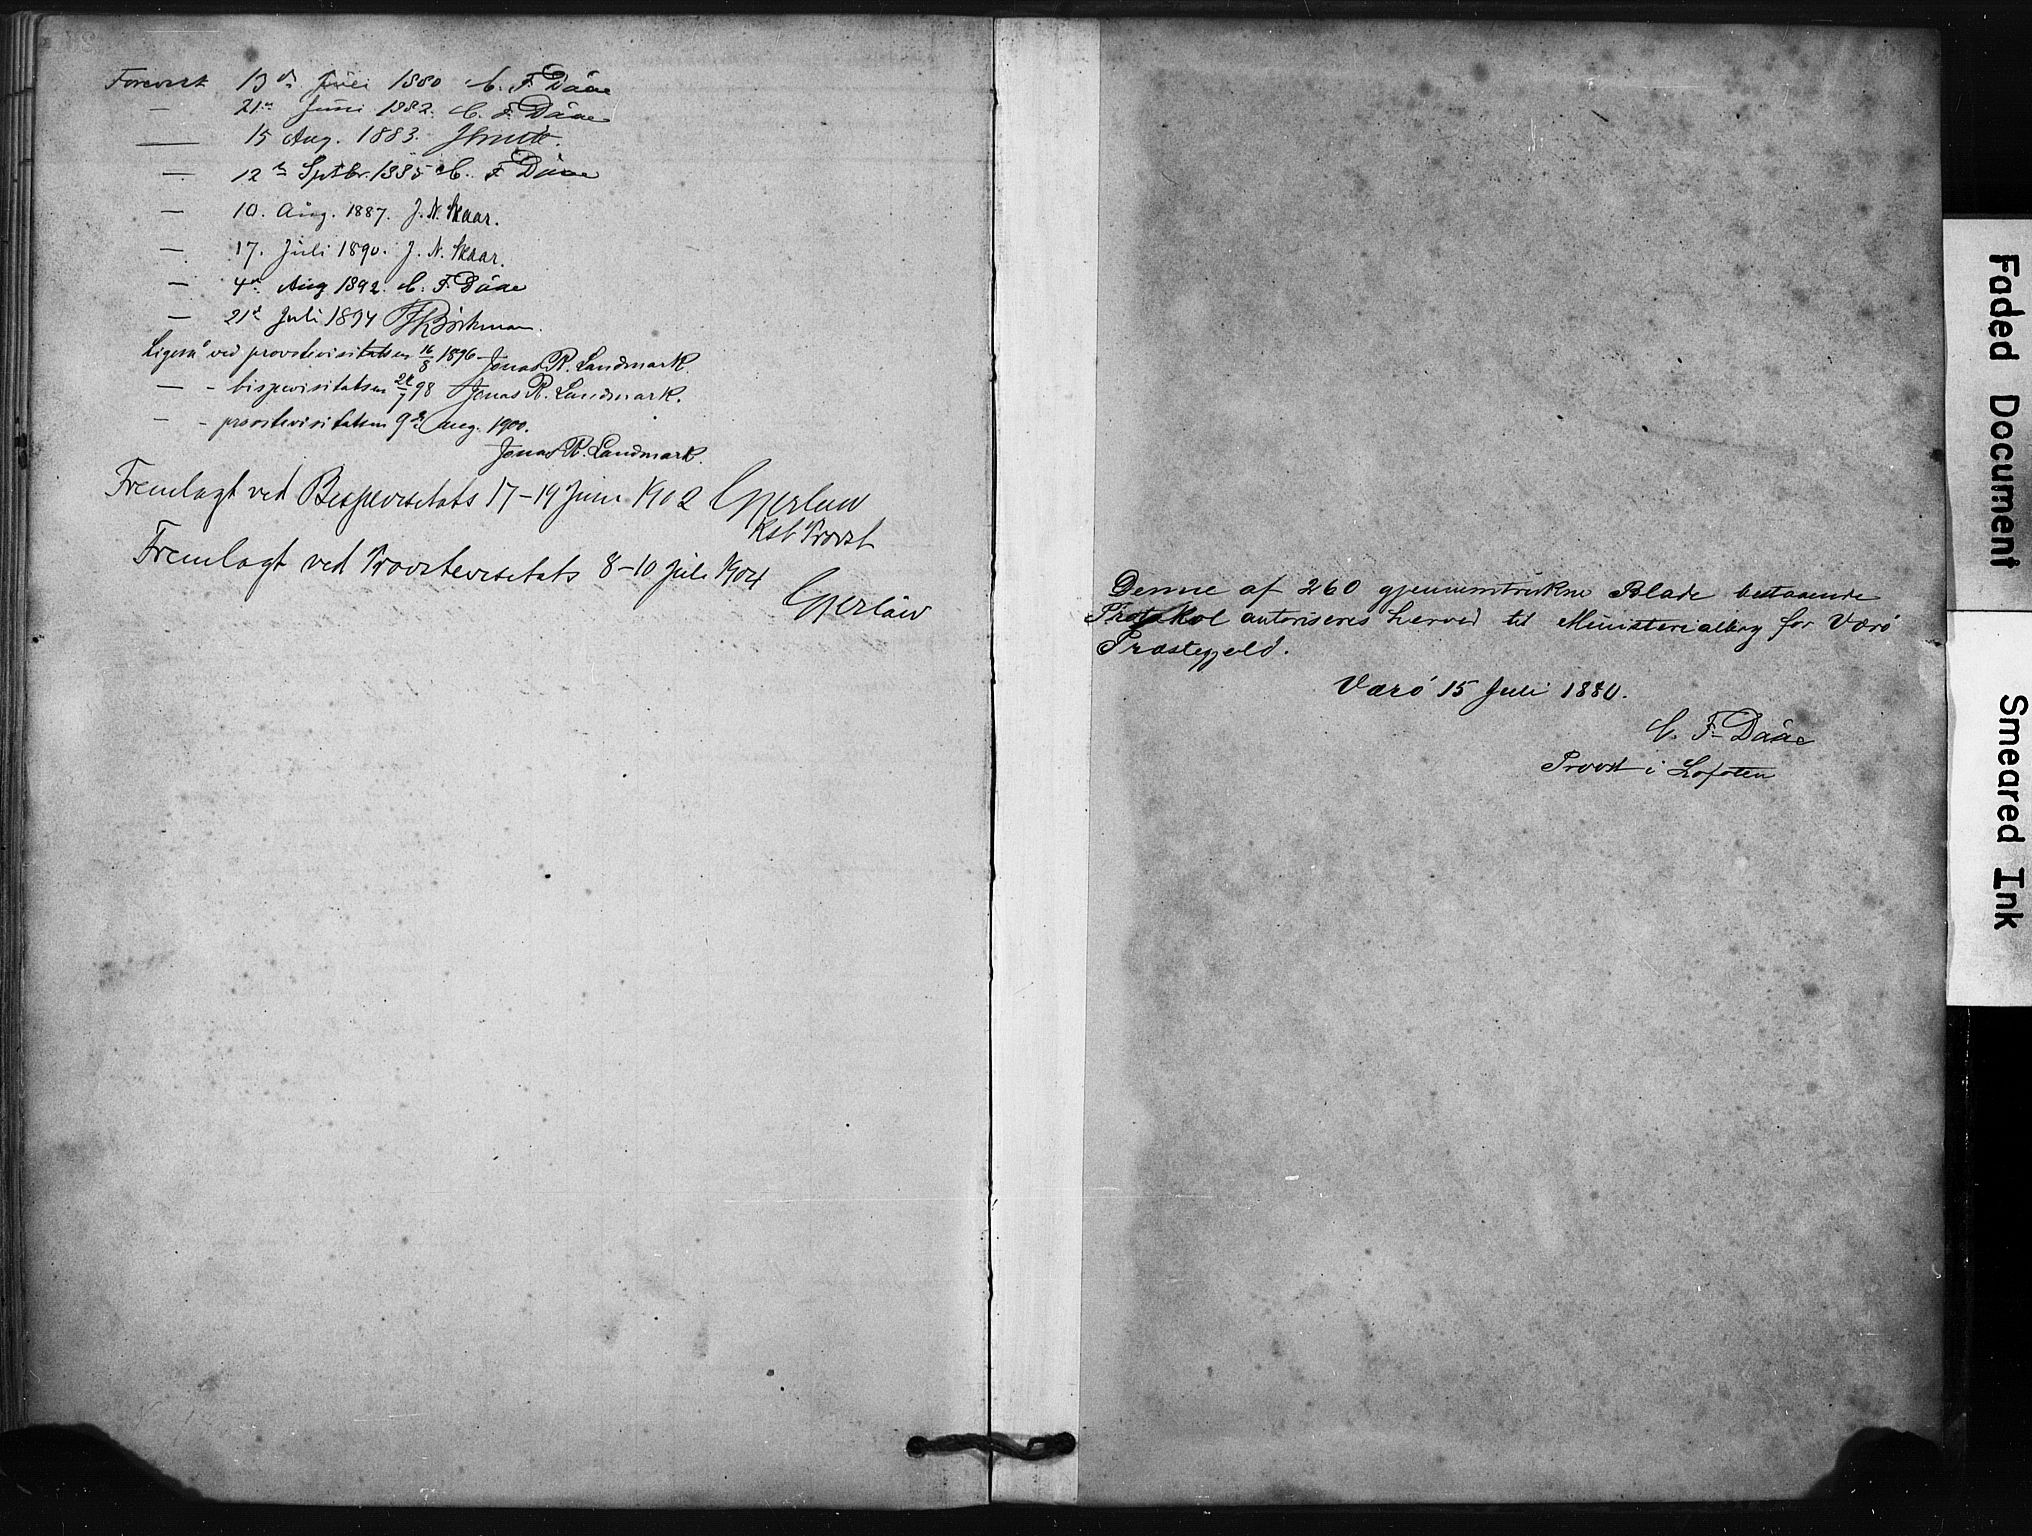 Forevist 13de Juli 1880 C. F. Daae
— 21de Juni 1882. C. F. Daae
— 15 Aug. 1883.
— 12te Septbr. 1885 C. F. Daae
— 10. Aug. 1887. J. N. Skaar.
— 17. Juli 1890. J. N. Skaar.
— 4de Aug 1892. C. F. Daae
— 21de Juli 1894 Böckman.
Ligesaa ved provstevisitatsen 16/8 1896 Jonas R. Landmark.
— - bispevisitatsen 98 Jonas R. Landmark.
— - provstevisitatsen 9de Aug. 1900.
Jonas R. Landmark.
Fremlagt ved Bispevisitats 17-19 Juni 1902 Gjerløw
Kst Provst
Fremlagt ved Provstevisitats 8-10 Juli 1904
Gjerløw
Denne af 260 gjennemtrukne Blade bestaaende
Protokol autoriseres herved til Ministerialbog for Værö
Præstegjeld.
Værö 15 Juli 1880.
C. F. Daae
Provst i Lofoten
Faded Document
Smeared Ink